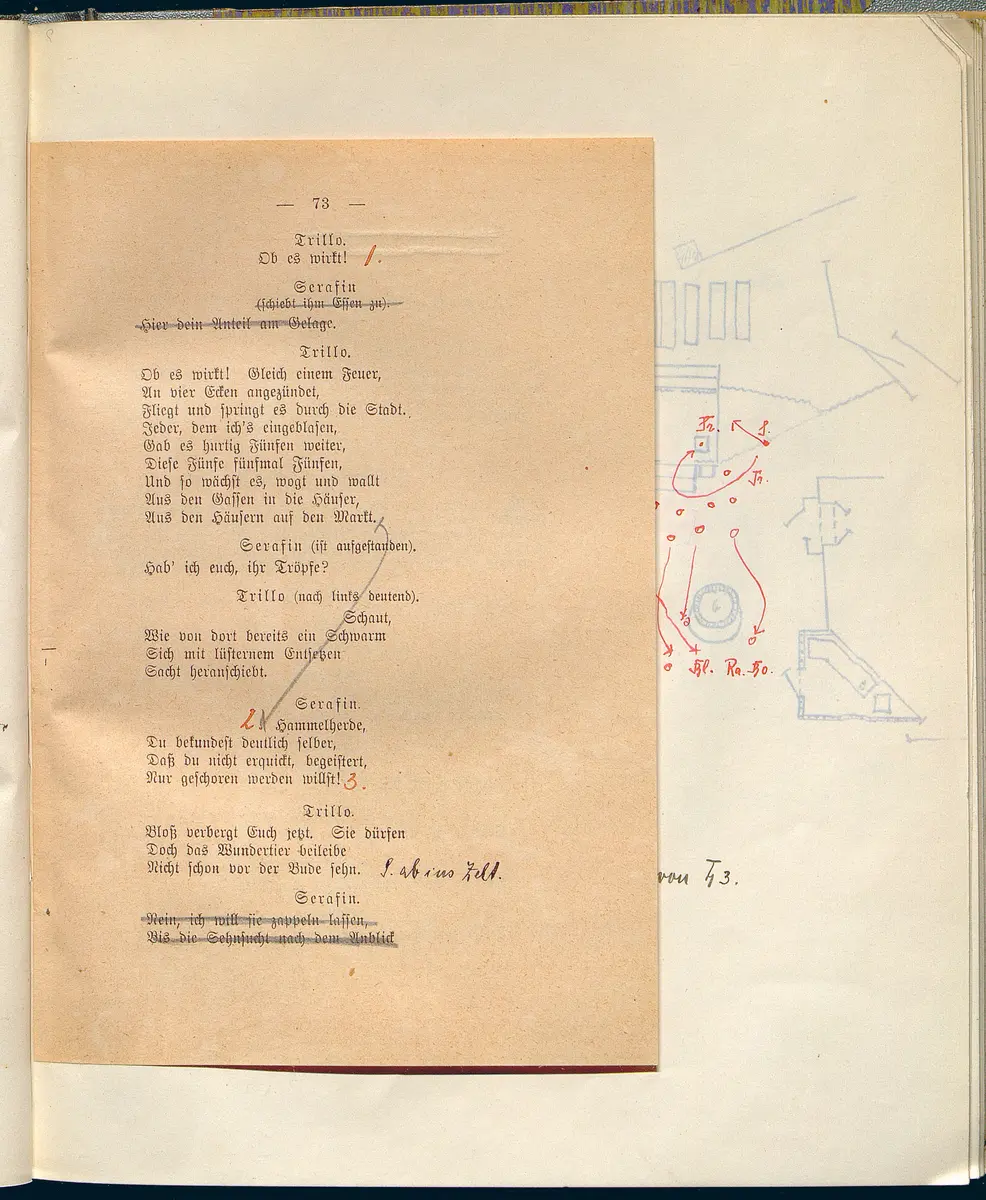 — 73 —
Trillo.
Ob es wirkt! 1.
Serafin
(schiebt ihm Essen zu).
Hier dein Anteil am Gelage.
Trillo.
Ob es wirkt! Gleich einem Feuer,
An vier Ecken angezündet,
Fliegt und springt es durch die Stadt.
Jeder, dem ich's eingeblasen,
Gab es hurtig Fünfen weiter,
Diese Fünfe fünfmal Fünfen,
Und so wächst es, wogt und wallt
Aus den Gassen in die Häuser,
Aus den Häusern auf den Markt.
Serafin (ist aufgestanden).
Hab' ich euch, ihr Tröpfe?
Trillo (nach links deutend).
Schaut,
Wie von dort bereits ein Schwarm
Sich mit lüsternem Entsetzen
Sacht heranschiebt.
Serafin.
2. Hammelherde,
Du bekundest deutlich selber,
Daß du nicht erquickt, begeistert,
Nur geschoren werden willst! 3.
Trillo.
Bloß verbergt Euch jetzt. Sie dürfen
Doch das Wundertier beileibe
Nicht schon vor der Bude sehn. S. ab ins Zelt.
Serafin.
Nein, ich will sie zappeln lassen,
Bis die Sehnsucht nach dem Anblick
Tr. S.
Tr.
Bl. Ra. Ho.
von
3.